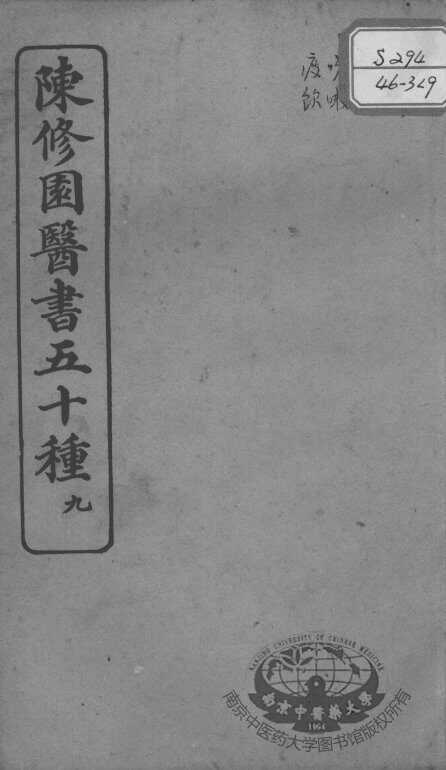 陳修園醫書五十種
九
S294
46-329
NANJING UNIVERSITY OF CHINESE MEDICINE
南京中醫藥大學
1954
南京中医药大学图书馆版权所有